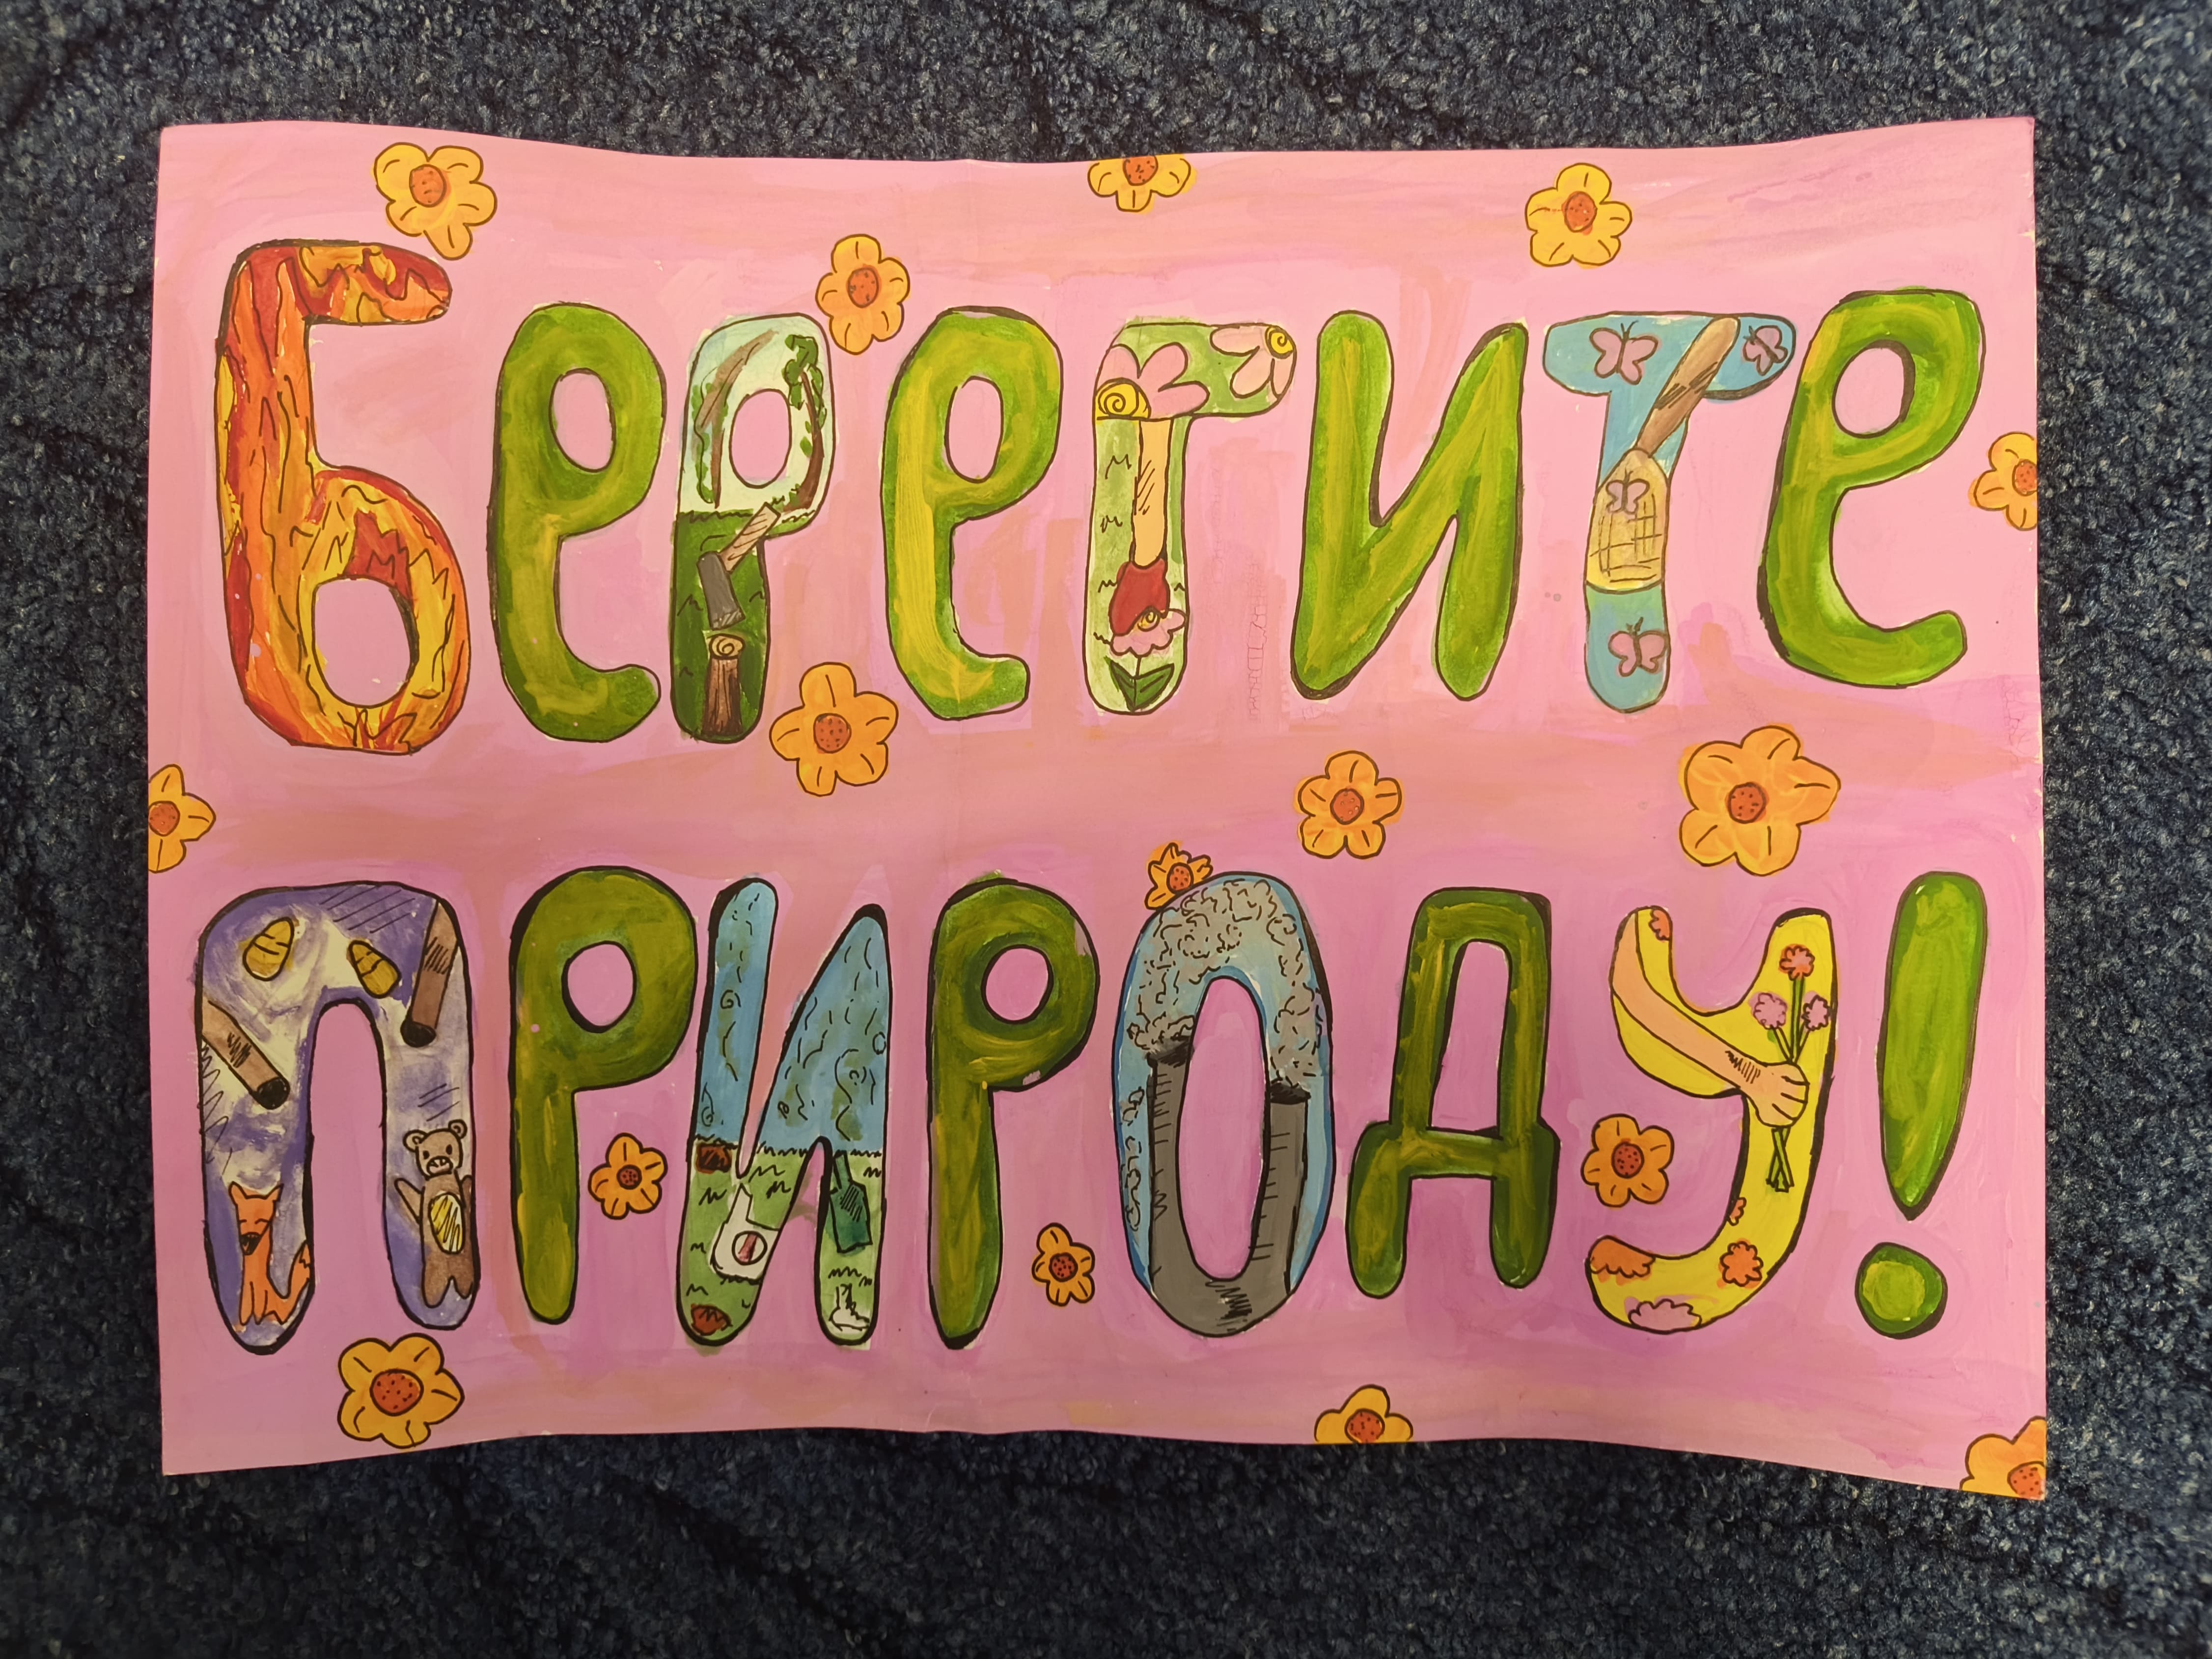 Берегите
природу!